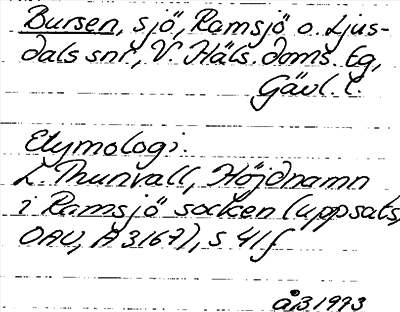 Bursen, sjö, Ramsjö o. Ljus-
dals snr, V. Häls. doms. tg,
Gävl. l.
Etymologi:
L. Thunvall, Höjdnamn
i Ramsjö socken (uppsats,
OAU, A 3167), s 41f
åB 1993